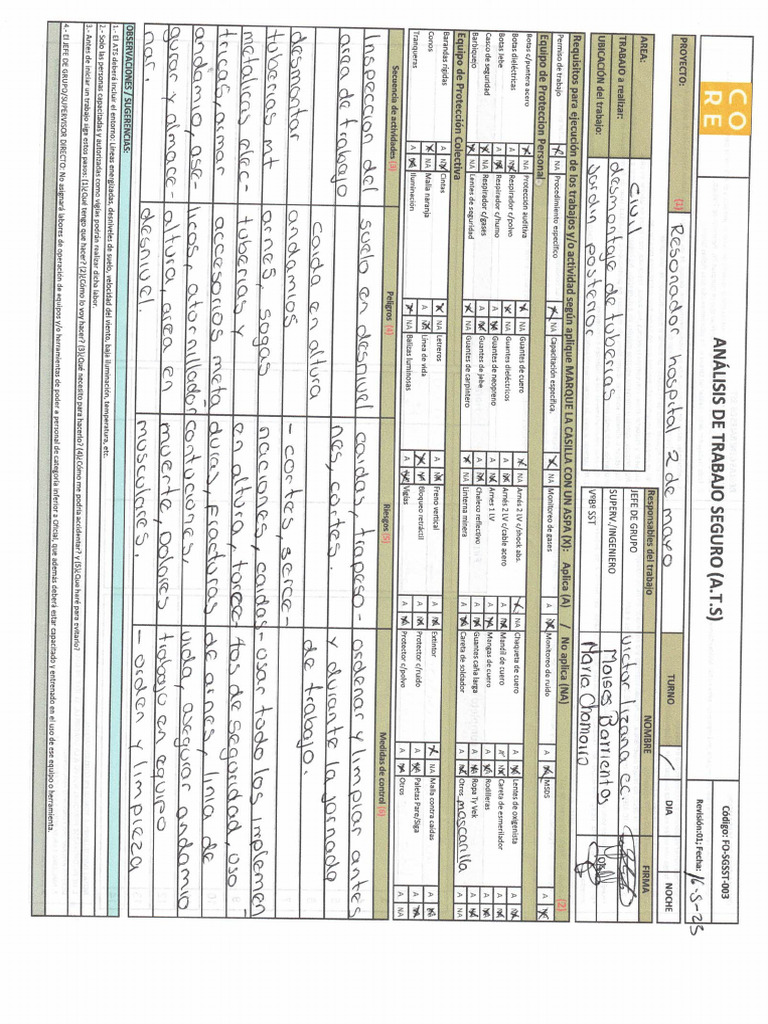 CO
RE
ANÁLISIS DE TRABAJO SEGURO (A.T.S)
Código: FO-SGSST-003
Revisión:01; Fecha: 16-5-23
PROYECTO: (1) Resonador hospital 2 de mayo
TURNO DIA NOCHE
AREA: Civil
TRABAJO a realizar: desmontaje de tuberias
UBICACIÓN del trabajo: Jardin posterior
Responsables del trabajo NOMBRE FIRMA
JEFE DE GRUPO Victor Lizana cc.
SUPERV./INGENIERO Moises Barrientos
V°B° SST Mario Chamorro
Requisitos para ejecución de los trabajos y/o actividad según aplique MARQUE LA CASILLA CON UN ASPA (X): Aplica (A) / No aplica (NA) (2)
Permiso de trabajo X NA Procedimiento especifico X NA Capacitación especifica. X NA Monitoreo de gases A X Monitoreo de ruido A X MSDS A X
Equipo de Proteccion Personal
Botas c/puntera acero X NA Protección auditiva X NA Guantes de cuero X NA Arnés 2 LV c/shock abs. X NA Chaqueta de cuero A X Lentes de oxigenista A X
Botas dieléctricas A X Respirador c/polvo X NA Guantes dieléctricos A X Arnés 2 LV c/cable acero A X Mandil de cuero A X Careta de esmerilador A X
Botas Jebe A X Respirador c/humo A X Guantes de neopreno A X Arnes 1 LV A X Mangas de cuero A X Rodilleras A X
Casco de seguridad X NA Respirador c/gases A X Guantes de jebe A X Chaleco reflectivo X NA Guantes caña larga A X Ropa Ty Vek A X
Barbiquejo X NA Lentes de seguridad X NA Guantes de carpintero X NA Linterna minera A X Careta de soldador A X Otros mascarilla
Equipo de Protección Colectiva
Barandas rigidas A X Cintas X NA Letreros X NA Freno vertical A X Extintor X NA Malla contra caidas A X
Conos X NA Malla naranja A X Línea de vida X NA Bloqueo retráctil X NA Protector c/ruido A X Paletas Pare/Siga A X
Tranqueras A X Iluminación A X Balizas luminosas A X Vigias X NA Protector c/polvo A X Otros A NA
Secuencia de actividades (3) Peligros (4) Riesgos (5) Medidas de control (6)
Inspeccion del suelo en desnivel caidas, trapeso- ordenar y limpiar antes
area de trabajo nes, cortes. y durante la jornada
caida en altura de trabajo.
desmontar andamios - cortes, serce- - usar todo los implemen
tuberias mt arnes, sogas naciones, caidas tos de seguridad, uso
metalicas elec- tuberias y en altura, torce- de arnes, linia de
tricas, armar accesorios meta duras, fracturas vida, asegurar andamio
andamio, ase licos, atornillador contuciones, trabajo en equipo
gurar y almace- altura, area en muerte, dolores - orden y limpieza
nar. desnivel. musculares.
OBSERVACIONES / SUGERENCIAS:
1.- El ATS deberá incluir el entorno: Líneas energizadas, desniveles de suelo, velocidad del viento, baja iluminación, temperatura, etc.
2.- Solo las personas capacitadas y autorizadas como vigías podrán realizar dicha labor.
3.- Antes de iniciar un trabajo siga estos pasos: (1)¿Qué tengo que hacer? (2)¿Cómo lo voy hacer? (3)¿Qué necesito para hacerlo? (4)¿Cómo me podría accidentar? y (5)¿Que haré para evitarlo?
4.- El JEFE DE GRUPO/SUPERVISOR DIRECTO: No asignará labores de operación de equipos y/o herramientas de poder a personal de categoría inferior a Oficial, que además deberá estar capacitado y entrenado en el uso de ese equipo o herramienta.